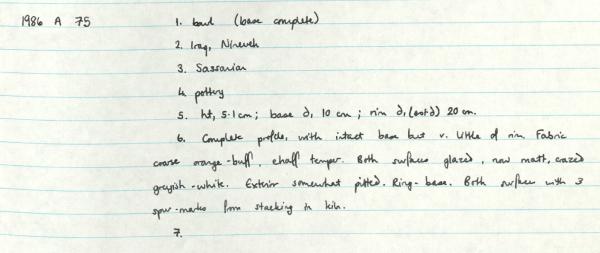 1986 A 75 1. bowl (base complete)
2. Iraq, Nineveh
3. Sassanian
4. pottery
5. ht, 5.1 cm; base d, 10 cm; rim d, (est'd) 20 cm.
6. Complete profile, with intact base but v. little of rim. Fabric
coarse orange-buff, chaff temper. Both surfaces glazed, now matt, crazed
greyish-white. Exterior somewhat pitted. Ring-base. Both surfaces with 3
spur-marks from stacking in kiln.
7.